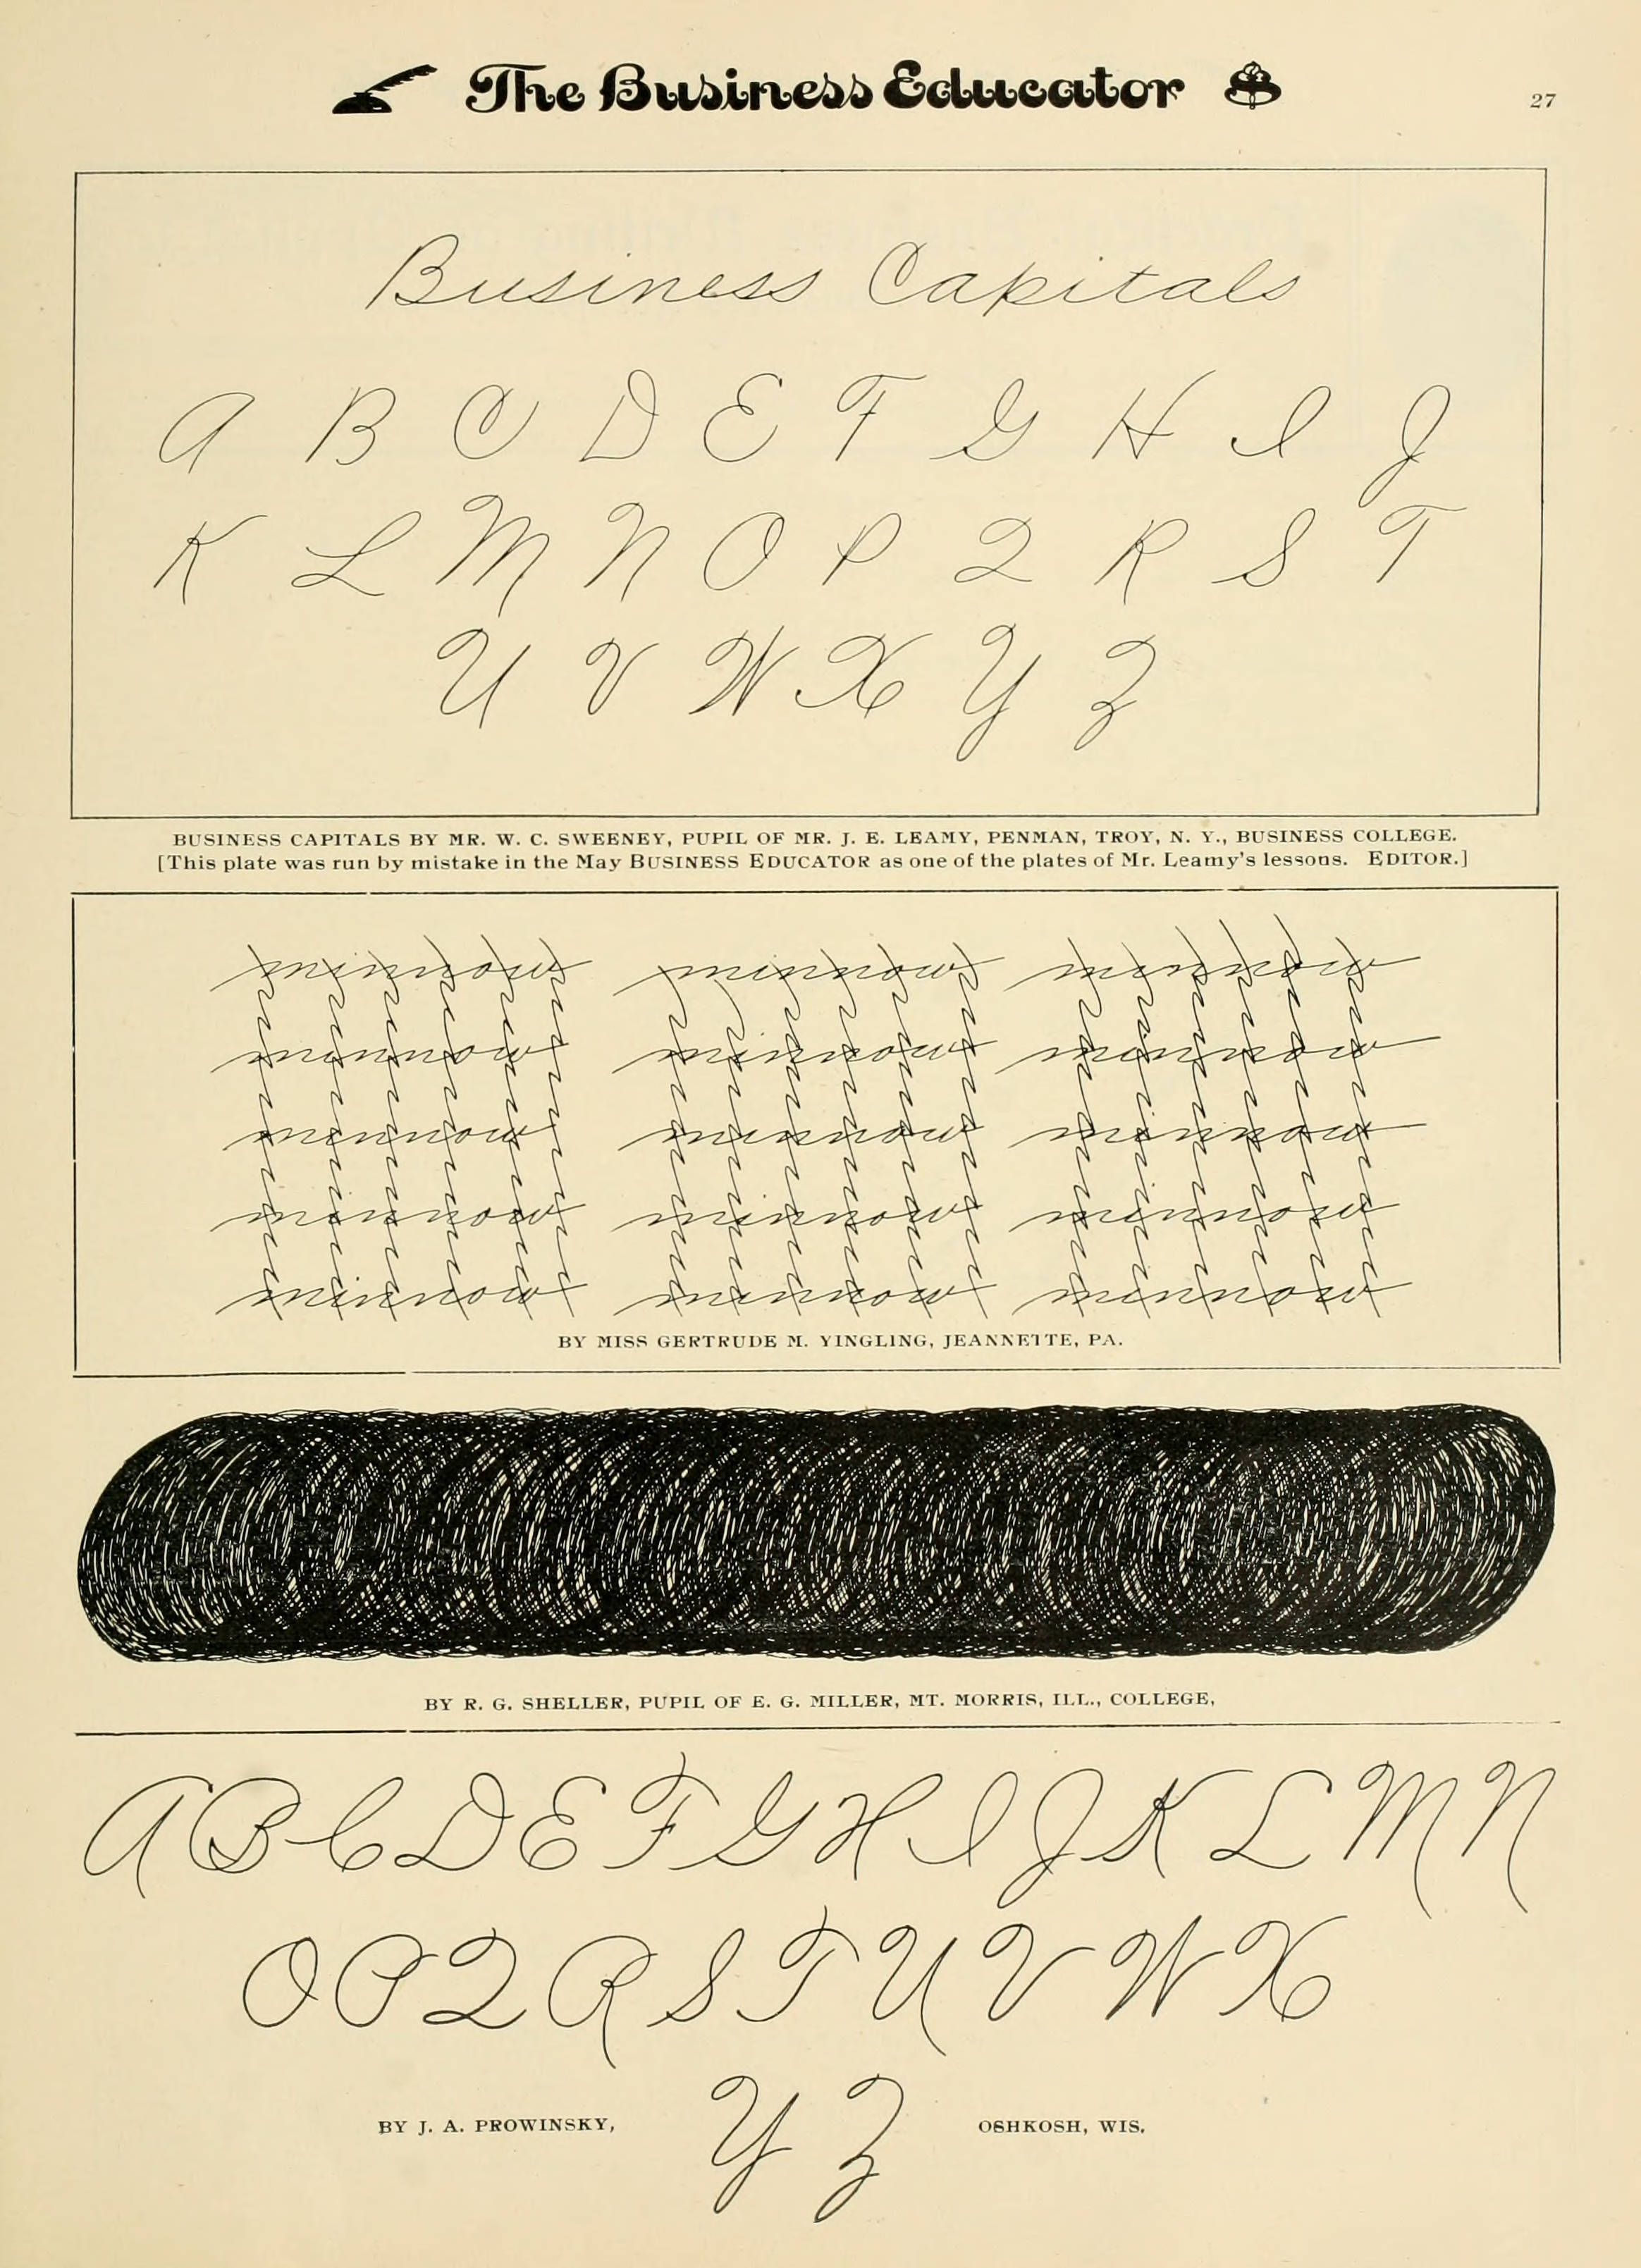 The Business Educator
27
Business Capitals
A B C D E F G H I J
K L M N O P Q R S T
U V W X Y Z
BUSINESS CAPITALS BY MR. W. C. SWEENEY, PUPIL OF MR. J. E. LEAMY, PENMAN, TROY, N. Y., BUSINESS COLLEGE.
[This plate was run by mistake in the May BUSINESS EDUCATOR as one of the plates of Mr. Leamy's lessons. EDITOR.]
minnow minnow minnow
minnow minnow minnow
minnow minnow minnow
minnow minnow minnow
minnow minnow minnow
BY MISS GERTRUDE M. YINGLING, JEANNETTE, PA.
BY R. G. SHELLER, PUPIL OF E. G. MILLER, MT. MORRIS, ILL., COLLEGE,
A B C D E F G H I J K L M N
O P Q R S T U V W X
Y Z
BY J. A. PROWINSKY, OSHKOSH, WIS.